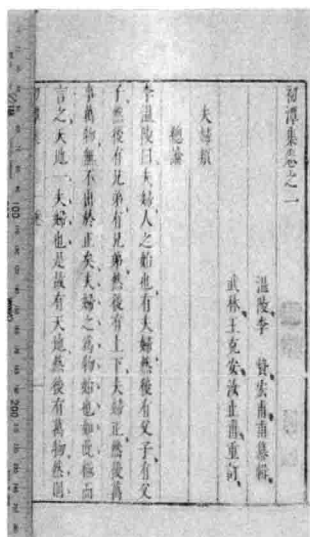 初潭集卷之一
溫陵李 贄宏甫甫纂輯
武林王克安汝止甫重訂
夫婦類
總論
李溫陵曰夫婦人之始也有夫婦然後有父子有父
子然後有兄弟有兄弟然後有上下夫婦正然後萬
事萬物無不出於正矣夫婦之為物始也如此極而
言之天地一夫婦也是故有天地然後有萬物然則
100
200